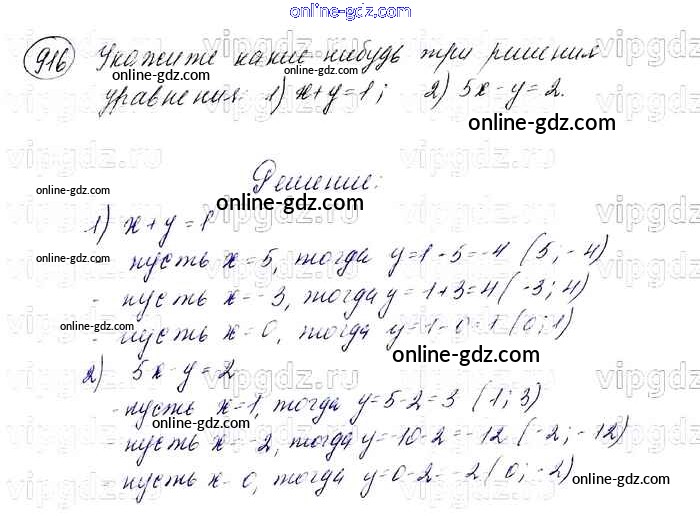 online-gdz.com
916 Укажите какие нибудь три решения
уравнения: 1) x+y=1; 2) 5x-y=2.
online-gdz.com
Решение:
online-gdz.com
1) x+y=1
пусть x=5, тогда y=1-5=-4 (5; -4)
- пусть x=-3, тогда y=1+3=4 (-3; 4)
- пусть x=0, тогда y=1-0=1 (0; 1)
online-gdz.com
2) 5x-y=2
- пусть x=1, тогда y=5-2=3 (1; 3)
- пусть x=-2, тогда y=-10-2=-12 (-2; -12)
- пусть x=0, тогда y=0-2=-2 (0; -2)
online-gdz.com